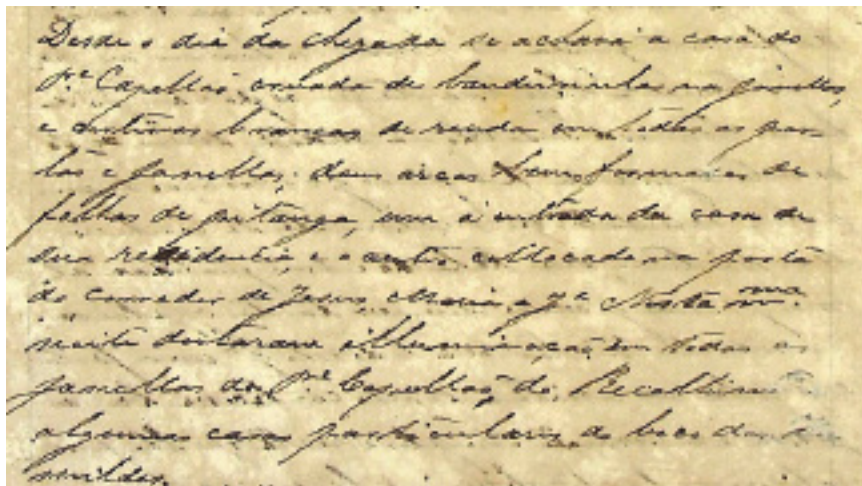 Desde o dia da chegada se achava a casa do
Pe. Capellão ornada de bandeirinhas na janellas,
e cortinas brancas de renda em todas as por-
tas e janellas, dous arcos bem formados de
folhas de pitanga, um á entrada da casa de
sua residencia, e o outro collocado na porta
do corredor de Jesus, Maria, e Je. Nesta mma.
noite deitarão illuminação em todas as
janellas do Pe. Capellão, do Recolhim
algumas casas particulares do beco dos
mildes.